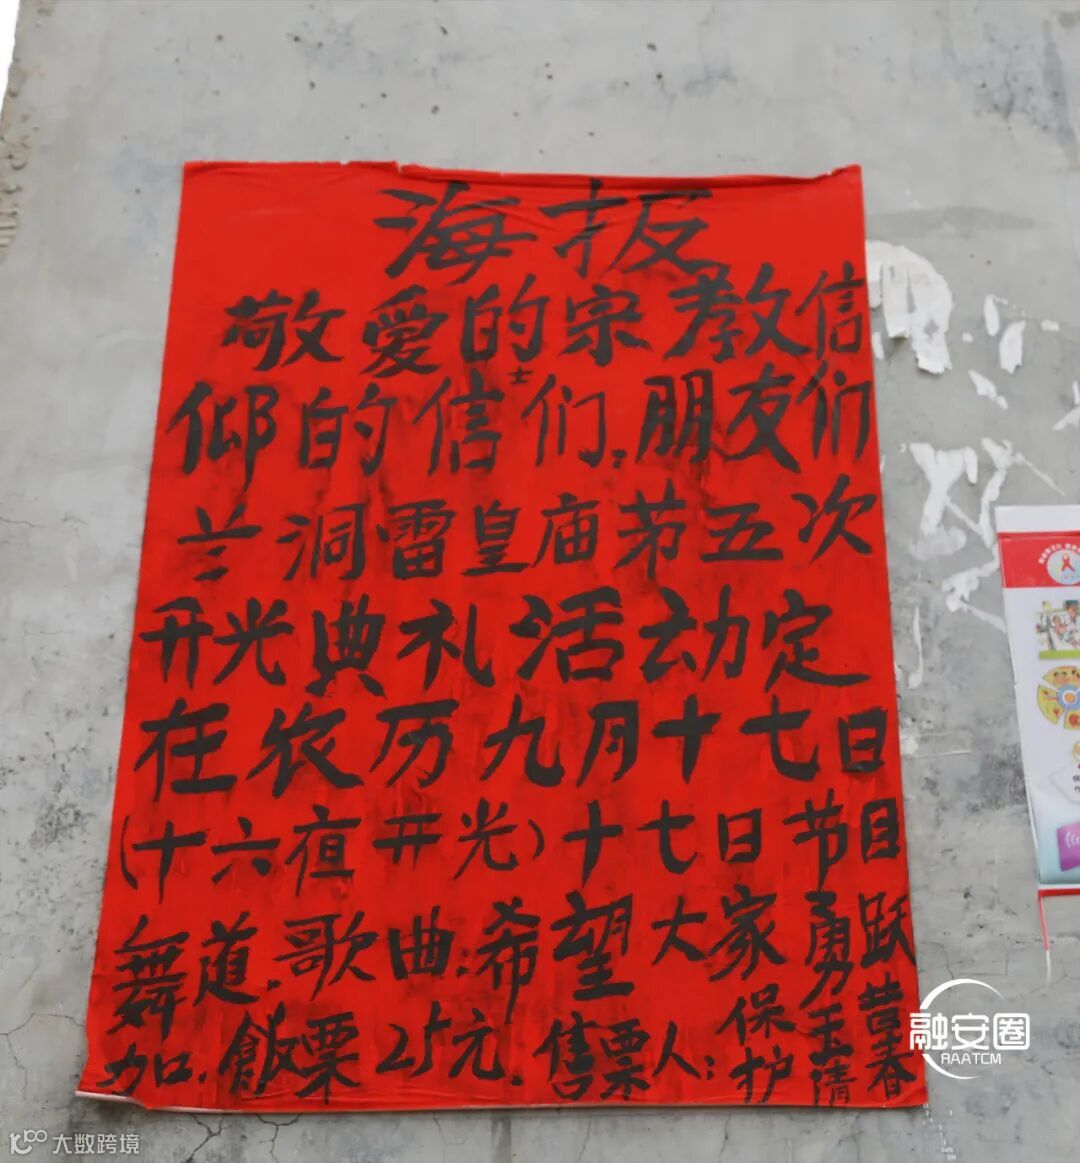 海报
敬爱的宗教信
仰的信士们.朋友们
兰洞雷皇庙苐五次
开光典礼活动定
在农历九月十七日
(十六夜开光)十七日节目
舞道.歌曲.希望大家勇跃
加.飯票25元.售票人:保护 玉清 黄春
融安圈
RAATCM
大数跨境